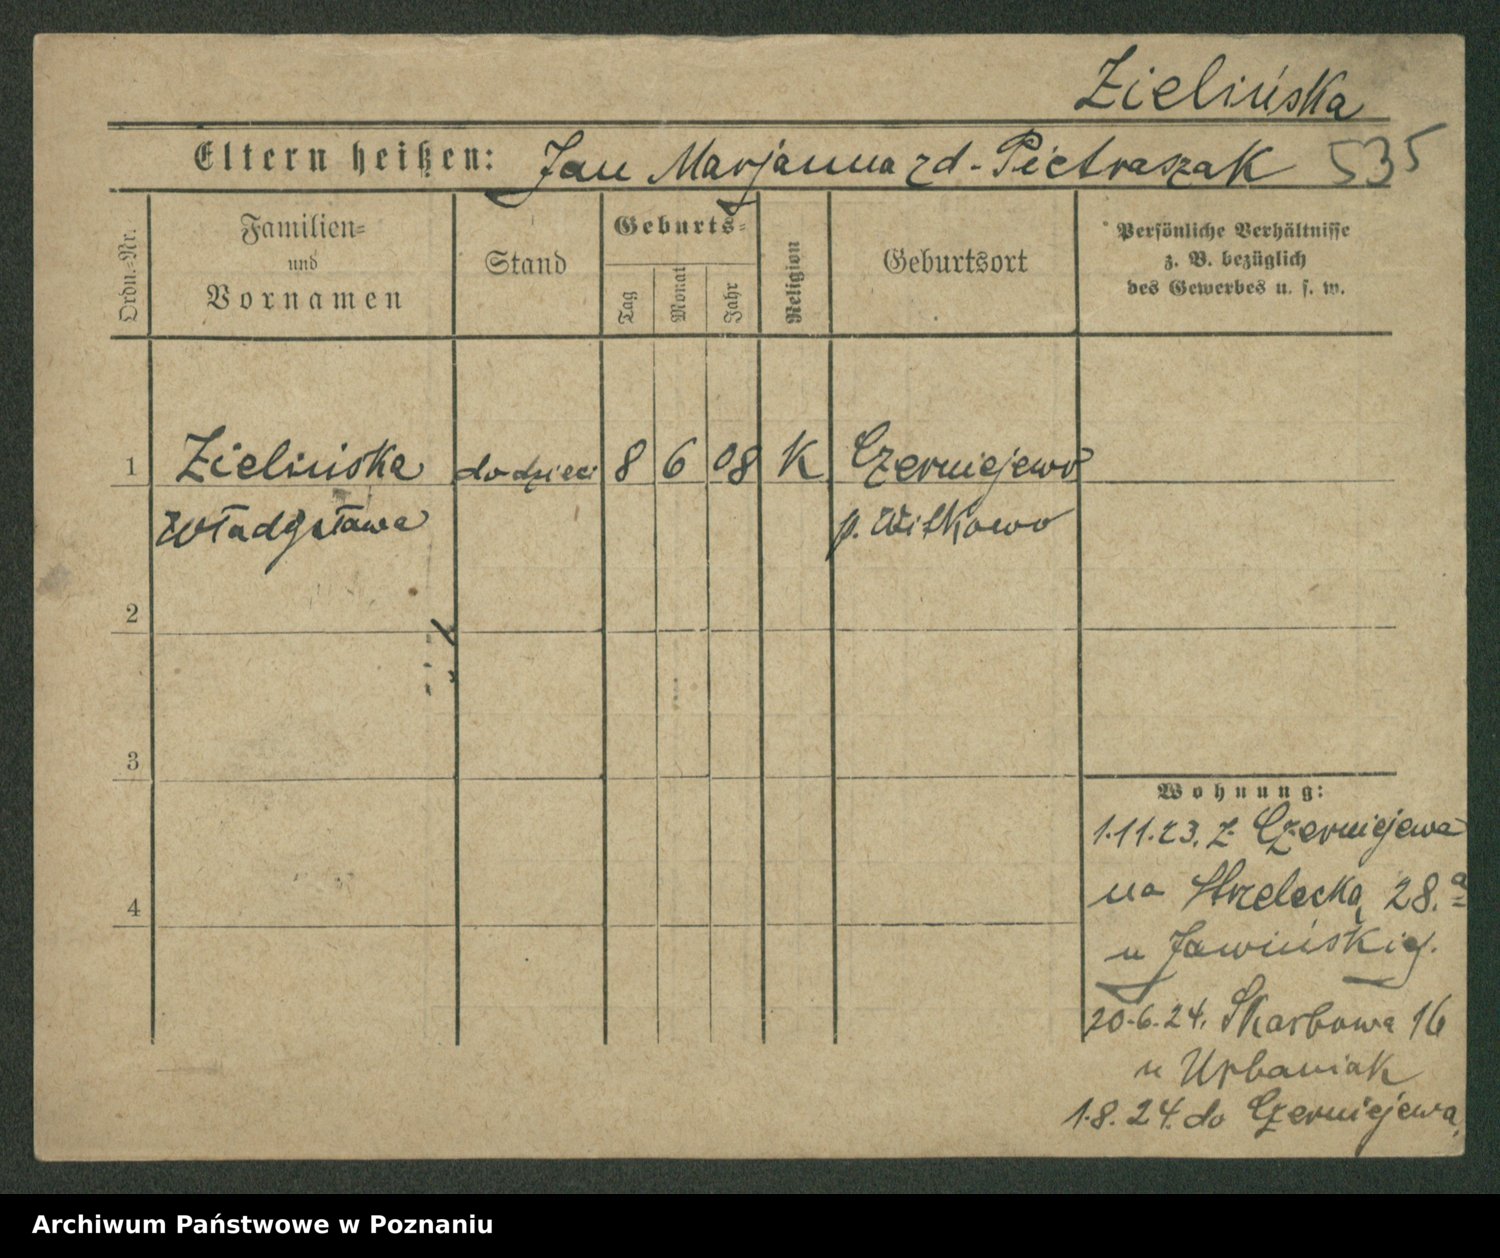 Zielińska
Eltern heißen: Jan Marjanna zd. Pietraszak 535
Ordn.-Nr.
Familien- und Vornamen
Stand
Geburts-
Tag
Monat
Jahr
Religion
Geburtsort
Persönliche Verhältnisse
z. B. bezüglich
des Gewerbes u. s. w.
1 Zielińska do dzieci 8 6 08 K Czerniejewo
Władysława p. Witkowo
2
3
Wohnung:
1.11.23. z Czerniejewa
na Strzelecką 28.a
4
u Jawińskiej.
20.6.24. Skarbowa 16
u Urbaniak
1.8.24. do Czerniejewa.
Archiwum Państwowe w Poznaniu